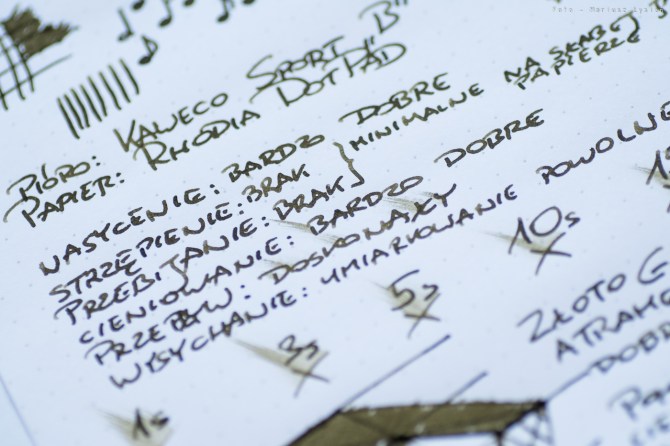 Foto - Mariusz
PIÓRO: KAWECO SPORT "B"
PAPIER: RHODIA DOTPAD
NASYCENIE: BARDZO DOBRE
STRZĘPIENIE: BRAK
PRZEBIJANIE: BRAK } MINIMALNE NA SŁABEJ
PAPIERZE
CIENIOWANIE: BARDZO DOBRE
PRZEPŁYW: DOSKONAŁY
WYSYCHANIE: UMIARKOWANIE POWOLNE
1s
3s
5s
10s
ZŁOTO
DOBR